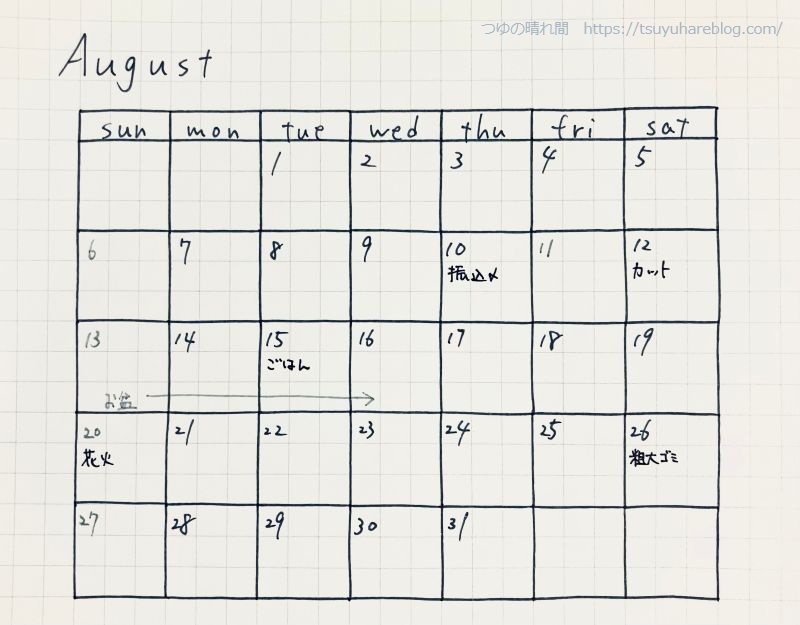 つゆの晴れ間 https://tsuyuhareblog.com/
August
sun mon tue wed thu fri sat
1 2 3 4 5
6 7 8 9 10 11 12
振込〆 カット
13 14 15 16 17 18 19
ごはん
お盆
20 21 22 23 24 25 26
花火 粗大ゴミ
27 28 29 30 31